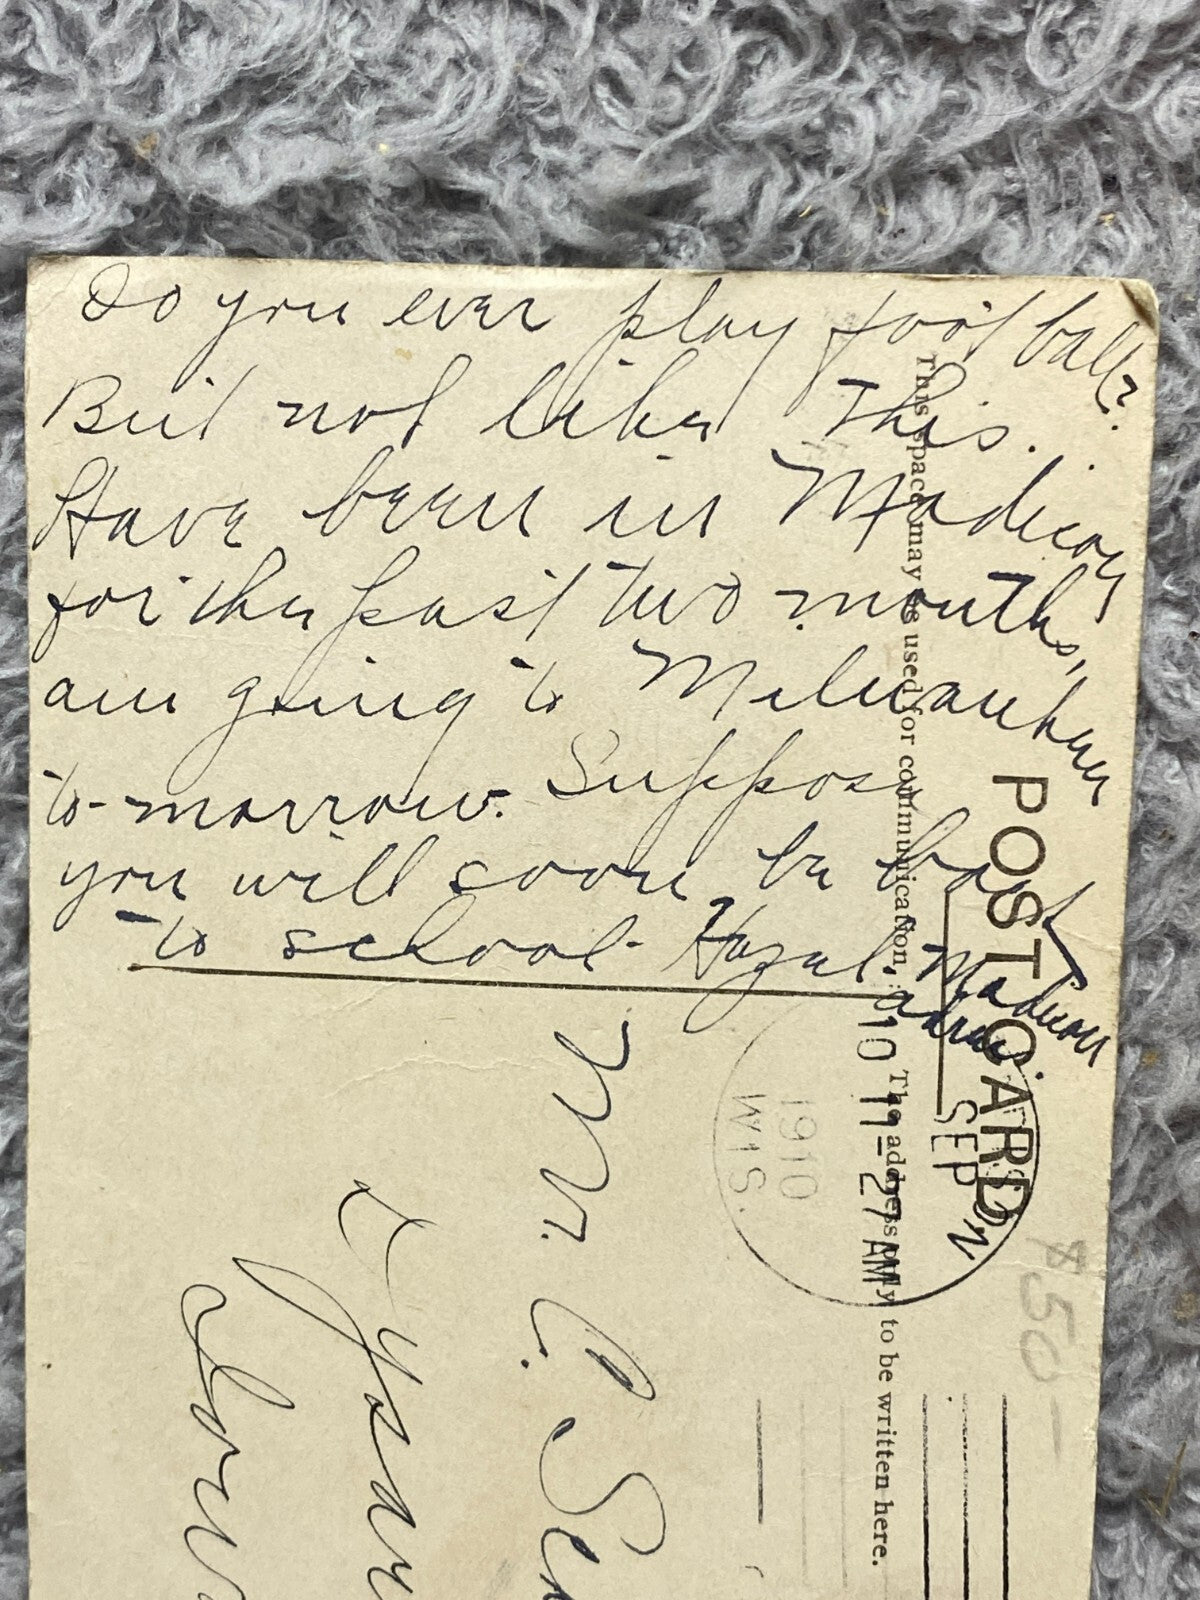 Do you ever play foot ball?
But not like this.
Have been in Madison
for the past two months,
am going to Milwaukee
to-morrow. Suppose
you will soon be back
to school. Hazel. Madison
adres.
POST CARD
This space may be used for communication.
The address only to be written here.
SEP
10 11-27 AM
1910
WIS.
$50-
Mr. C.
Dysart
Iowa